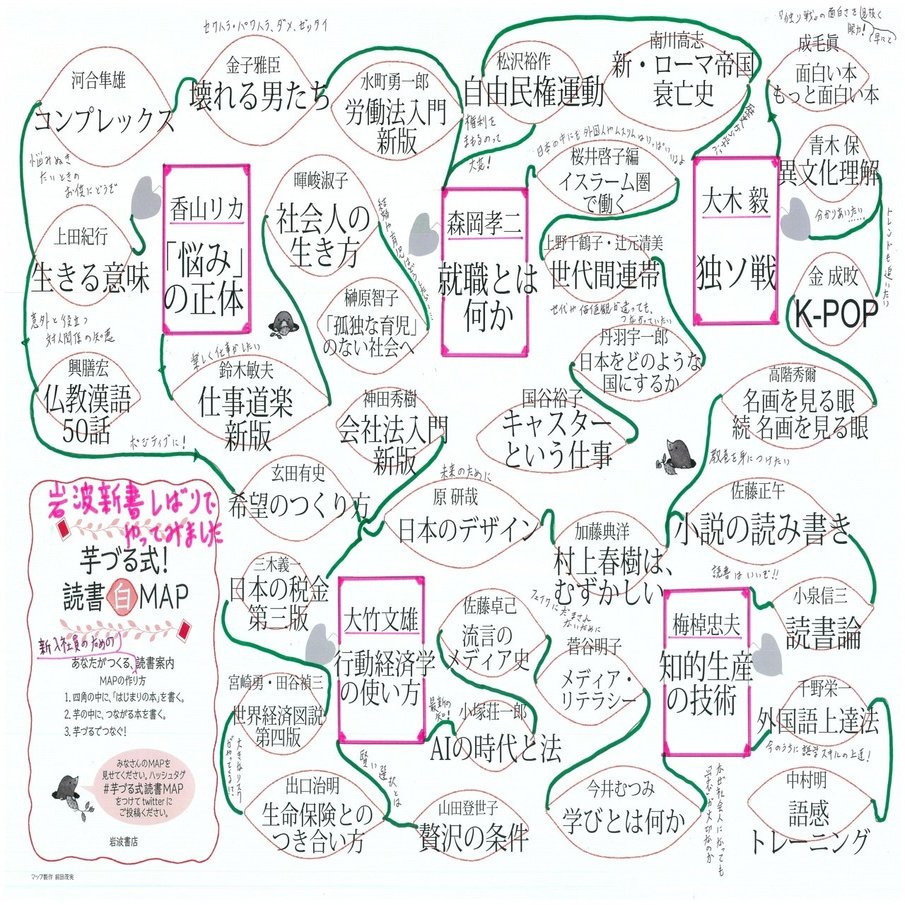 セクハラ・パワハラ、ダメ、ゼッタイ
河合隼雄
コンプレックス
金子雅臣
壊れる男たち
水町勇一郎
労働法入門
新版
松沢裕作
自由民権運動
南川高志
新・ローマ帝国
衰亡史
『独ソ戦』の面白さを見抜く
眼力!
成毛眞
面白い本
もっと面白い本
権利を
まもるのって
大変!
悩みぬき
たいときの
お供にどうぞ
香山リカ
「悩み」
の正体
暉峻淑子
社会人の
生き方
森岡孝二
就職とは
何か
桜井啓子編
イスラーム圏
で働く
大木 毅
独ソ戦
青木 保
異文化理解
分かりあいたい……
トレンドも追いたい
上田紀行
生きる意味
意外と役立つ
対人関係の知恵
榊原智子
「孤独な育児」
のない社会へ
上野千鶴子・辻元清美
世代間連帯
世代や価値観が違っても、
つながっていたい
金 成玟
K-POP
丹羽宇一郎
日本をどのような
国にするか
興膳宏
仏教漢語
50話
楽しく仕事がしたい
鈴木敏夫
仕事道楽
新版
神田秀樹
会社法入門
新版
国谷裕子
キャスター
という仕事
高階秀爾
名画を見る眼
続 名画を見る眼
教養を身につけたい
ポジティブに!
玄田有史
希望のつくり方
未来のために
原 研哉
日本のデザイン
加藤典洋
村上春樹は、
むずかしい
佐藤正午
小説の読み書き
読書はいいぞ!!
岩波新書しばりで
やってみました
芋づる式!
読書 白 MAP
新入社員のための
あなたがつくる、読書案内
MAPの作り方
1. 四角の中に、「はじまりの本」を書く。
2. 芋の中に、つながる本を書く。
3. 芋づるでつなぐ!
みなさんのMAPを
見せてください。ハッシュタグ
#芋づる式読書MAP
をつけてtwitterに
ご投稿ください。
岩波書店
マップ製作 前田茂実
三木義一
日本の税金
第三版
大竹文雄
行動経済学
の使い方
佐藤卓己
流言の
メディア史
菅谷明子
メディア・
リテラシー
梅棹忠夫
知的生産
の技術
小泉信三
読書論
宮崎勇・田谷禎三
世界経済図説
第四版
小塚荘一郎
AIの時代と法
千野栄一
外国語上達法
今のうちに語学スキルの上達!
賢い選択とは
出口治明
生命保険との
つき合い方
山田登世子
贅沢の条件
今井むつみ
学びとは何か
なぜ社会人になっても
学びが大切なのか
中村明
語感
トレーニング